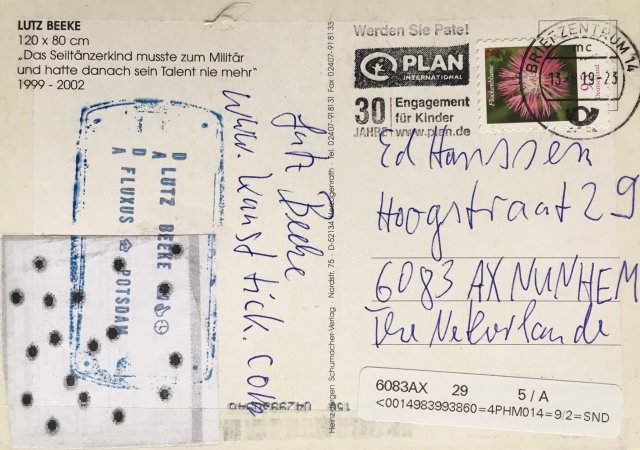 LUTZ BEEKE
120 x 80 cm
„Das Seiltänzerkind musste zum Militär
und hatte danach sein Talent nie mehr“
1999 - 2002
Werden Sie Pate!
PLAN
INTERNATIONAL
30
JAHRE
Engagement
für Kinder
www.plan.de
BRIEFZENTRUM 14
mc
19-23
Flockenblume
Deutschland
DADA
LUTZ BEEKE
FLUXUS POTSDAM
Lutz Beeke
www.kunstick.com
Schumacher-Verlag · Nordstr. 75 · D-52134 Herzogenrath · Tel. 02407-918131 Fax 02407-918133
Ed Hanssen
Hoogstraat 29
6083 AX NUNHEM
6083AX 29 5 / A
<0014983993860=4PHM014=9/2=SND